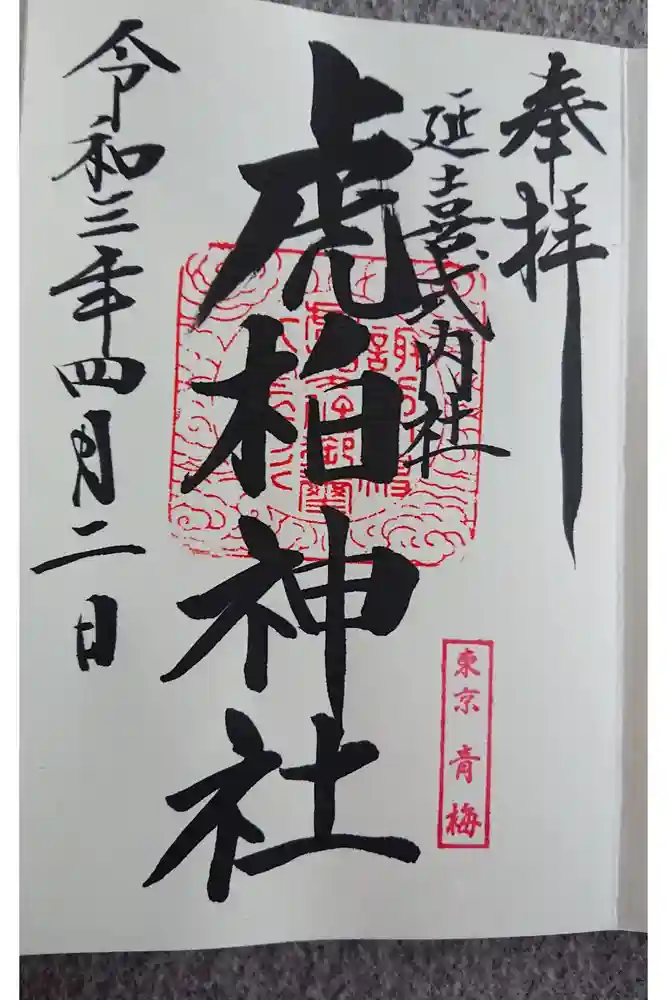 奉拝
延喜式内社
虎柏神社
令和三年四月二日
東京 青梅